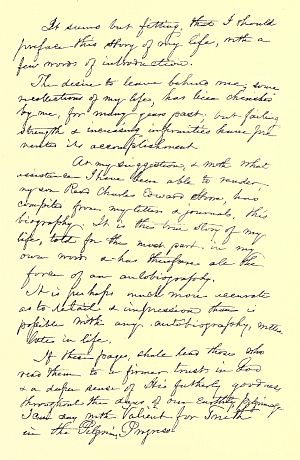 It seems but fitting, that I should
preface this story of my life, with a
few words of introduction.
The desire to leave behind me, some
recollections of my life, has been cherished
by me, for many years past; but failing
strength & increasing infirmities have pre
vented its accomplishment
At my suggestion, & with what
assistance I have been able to render,
my son Rev Charles Edward Stowe, has
compiled from my letters & journals, this
biography. It is the true story of my
life, told for the most part, in my
own words & has therefore all the
force of an autobiography.
It is perhaps much more accurate
as to detail & impression than is
possible with any autobiography, written
later in life.
If these pages, shall lead those who
read them to a firmer trust in God
& a deeper sense of His fatherly goodness
throughout the days of our earthly pilgrimage
I can say with Valient for Truth
in the Pilgrims Progress